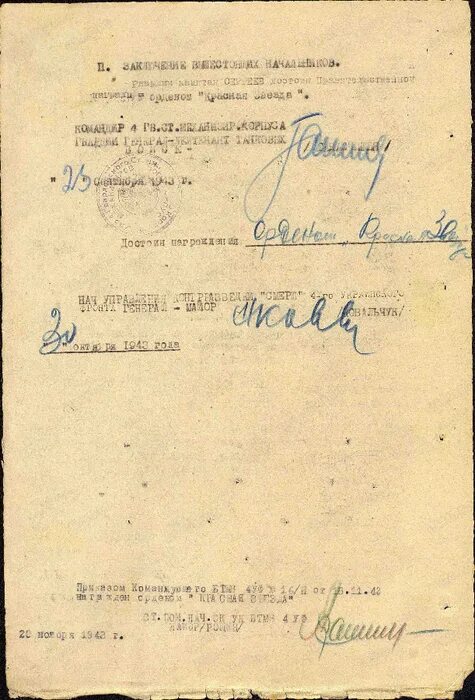 П. ЗАКЛЮЧЕНИЕ ВЫШЕСТОЯЩИХ НАЧАЛЬНИКОВ.
Гвардии капитан СЕРГЕЕВ достоин Правительственной
награды орденом "Красная Звезда".
КОМАНДИР 4 ГВ.СТ.МЕХАНИЗИР.КОРПУСА
ГВАРДИИ ГЕНЕРАЛ-ЛЕЙТЕНАНТ ТАНКОВЫХ
ВОЙСК-
"25" сентября 1943 г.
Достоин награждения Орденом "Красная Звезда"
НАЧ УПРАВЛЕНИЯ КОНТРРАЗВЕДКИ "СМЕРШ" 4-го УКРАИНСКОГО
ФРОНТА ГЕНЕРАЛ-МАЙОР /КОВАЛЬЧУК/
"30" октября 1943 года
Приказом Командующего БТМВ 4УФ № 16/Н от 18.11.43
награжден орденом "КРАСНАЯ ЗВЕЗДА"
СТ.ПОМ.НАЧ. УК БТМВ 4 УФ
МАЙОР
20 ноября 1943 г.